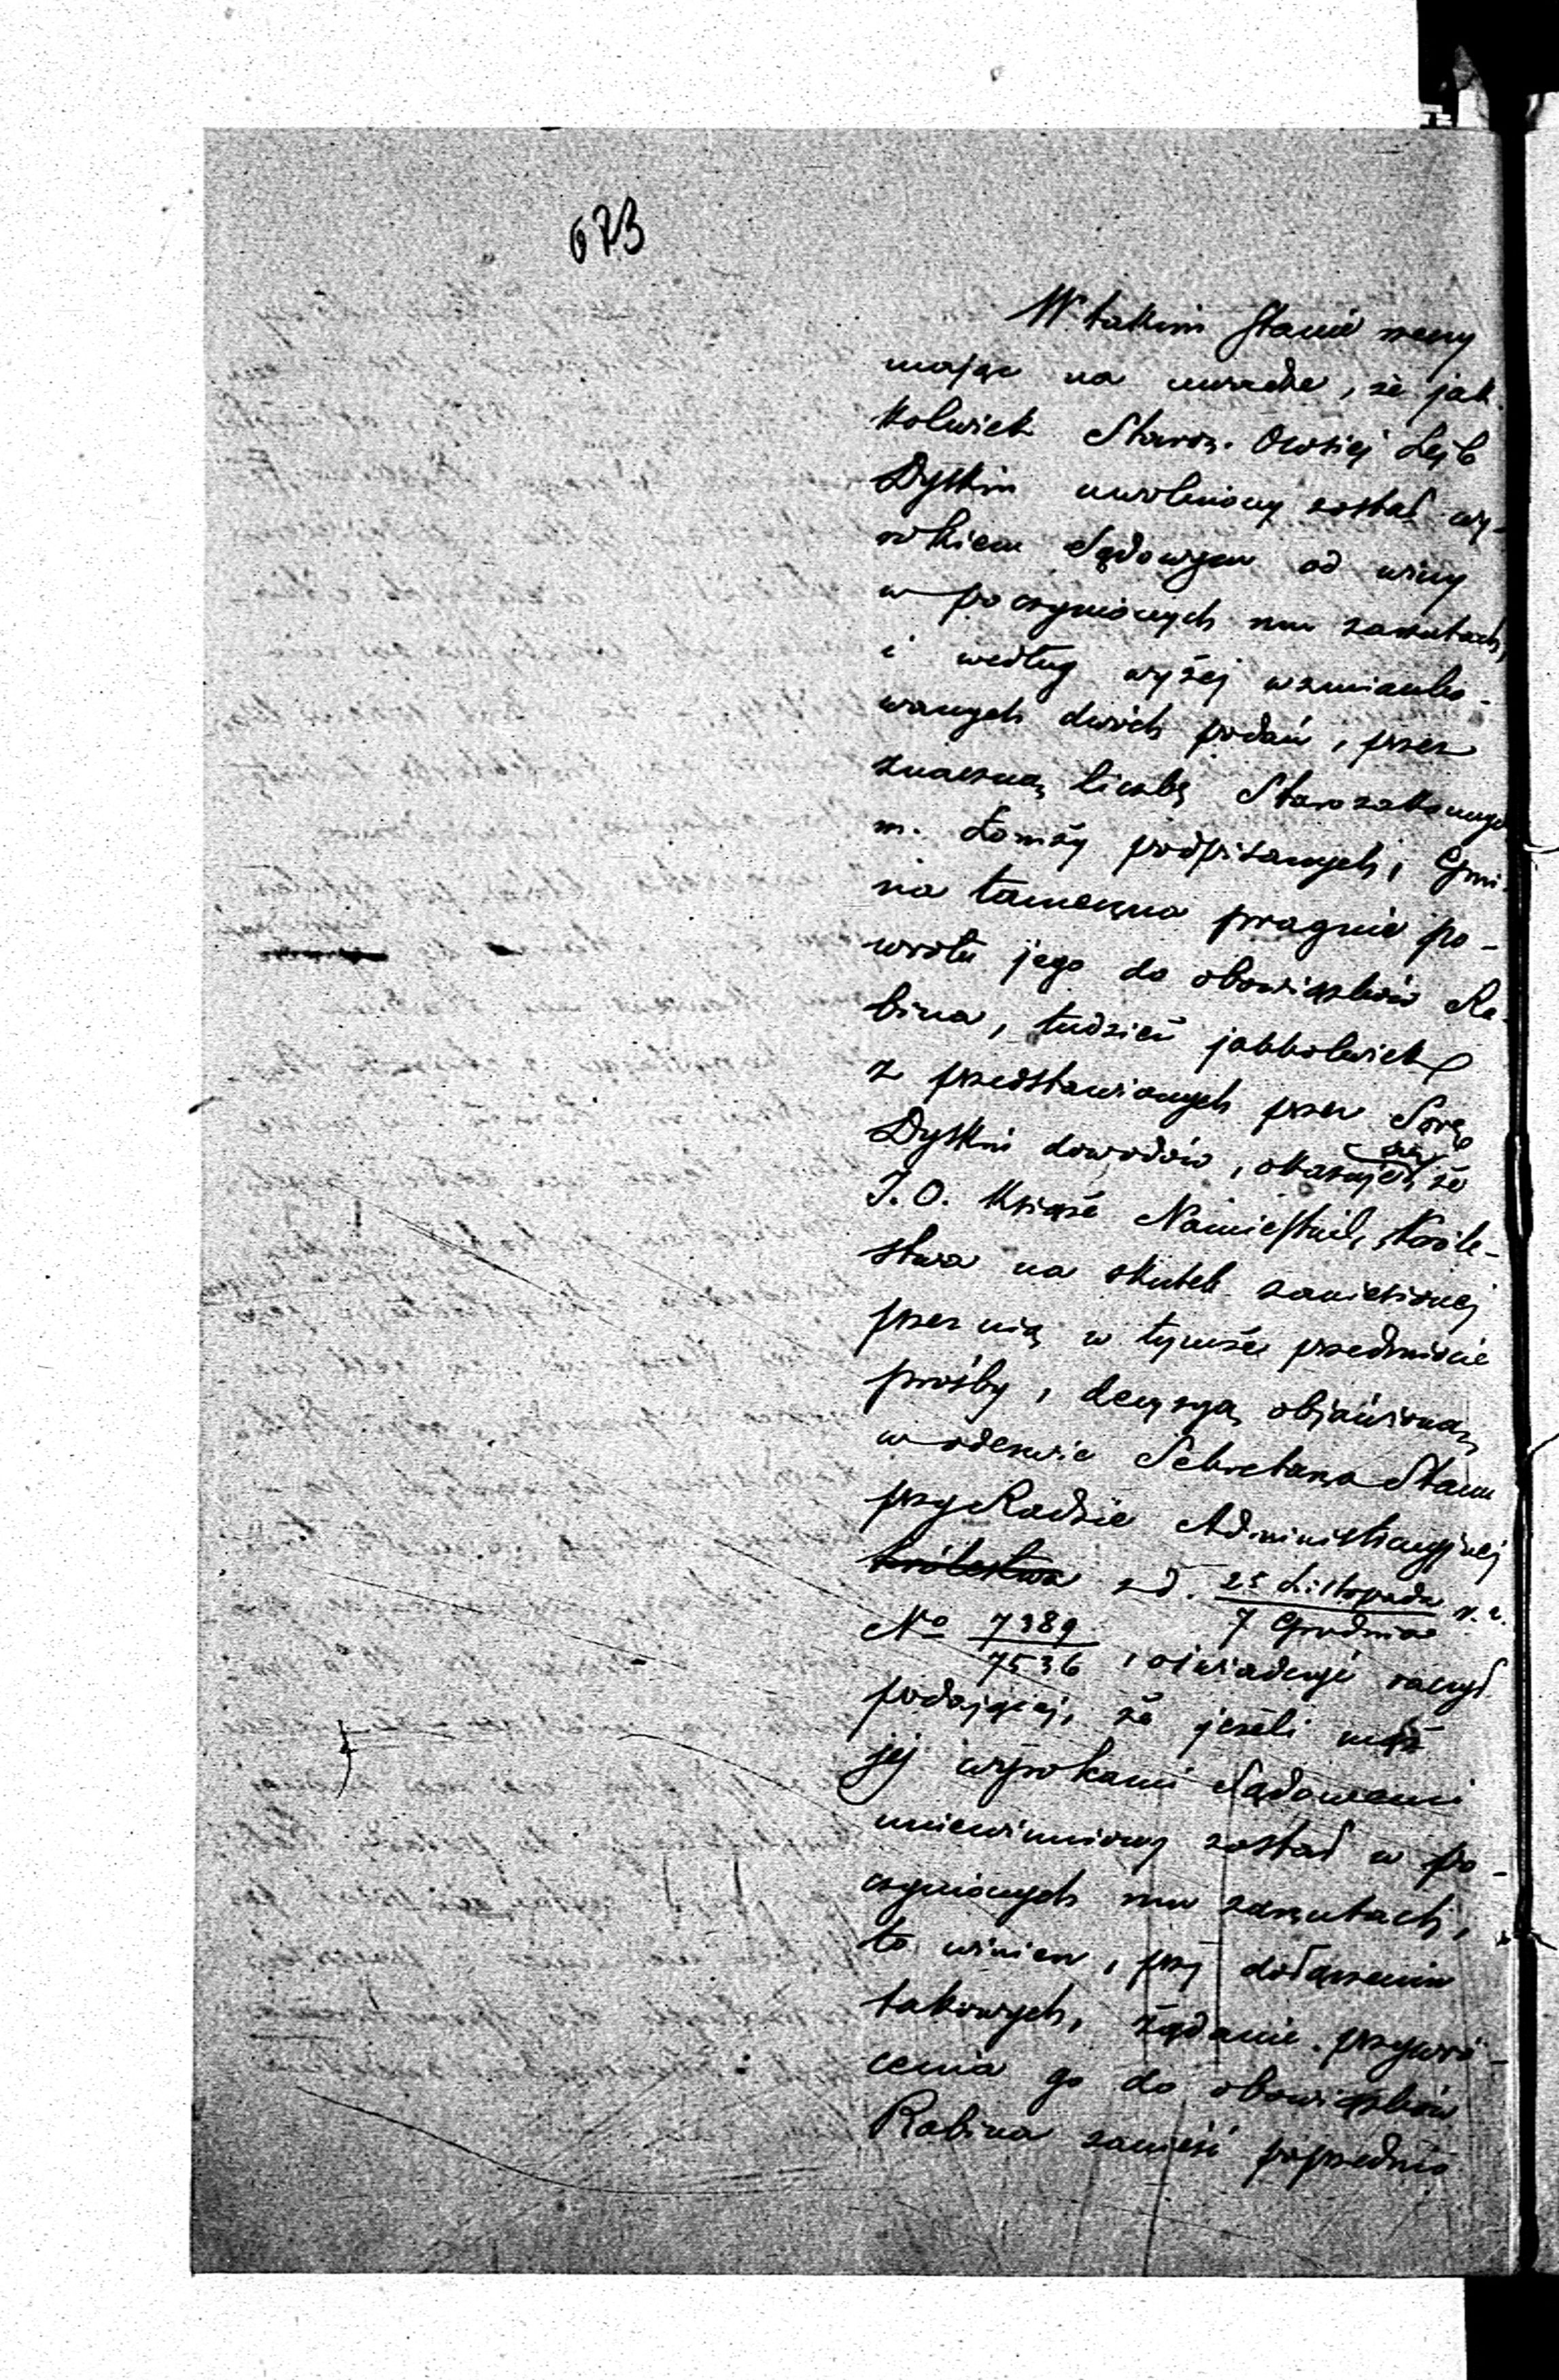 673
W takim stanie rzeczy
mając na uwadze, że jak
kolwiek Staroz. Owsiej Lejb
Dyskin uwolniony został wy-
rokiem Sądowym od winy
w poczynionych mu zarzutach,
i według wyżej wzmianko-
wanych dwóch podań, przez
znaczną liczbę Starozakonnych
m. Łomży podpisanych, Gmi-
na tameczna pragnie po-
wrotu jego do obowiązków Ra-
bina, tudzież jakkolwiek
z przedstawionych przez Sorę
Dyskin dowodów, okazuje się że
J. O. Książe Namiestnik Króle-
stwa na skutek zaniesionej
przez nią w tymże przedmiocie
prośby, decyzyą objawioną
w odezwie Sekretarza Stanu
przy Radzie Administracyjnej
Królestwa z d. 25 Listopada r. z.
7 Grudnia
No 7389
7536, oświadczyć raczył
podającej, że jeżeli mąż
jej wyrokami Sądowemi
uniewinniony został w po-
czynionych mu zarzutach,
to winien, przy dołączeniu
takowych, żądanie przywró-
cenia go do obowiązków
Rabina zanieść poprzednio